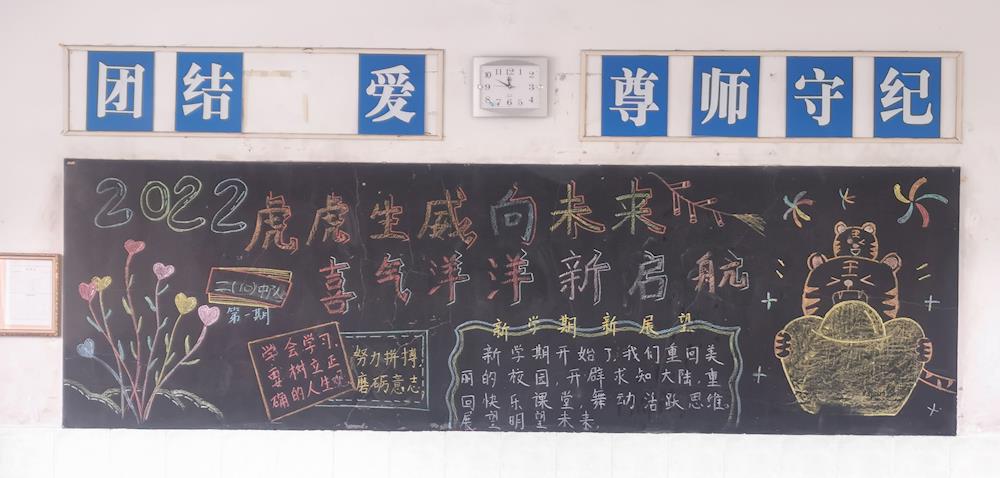 团结 爱
尊师守纪
2022虎虎生威向未来
喜气洋洋新启航
二(10)中队
第一期
学会学习,
要树立正
确的人生观
努力拼博,
磨砺意志,
新学期新展望
新学期开始了,我们重回美
丽的校园,开辟求知大陆,重
回快乐课堂,舞动活跃思维,
展望明望未来.
王
王
12
1
2
3
4
5
6
7
8
9
10
11